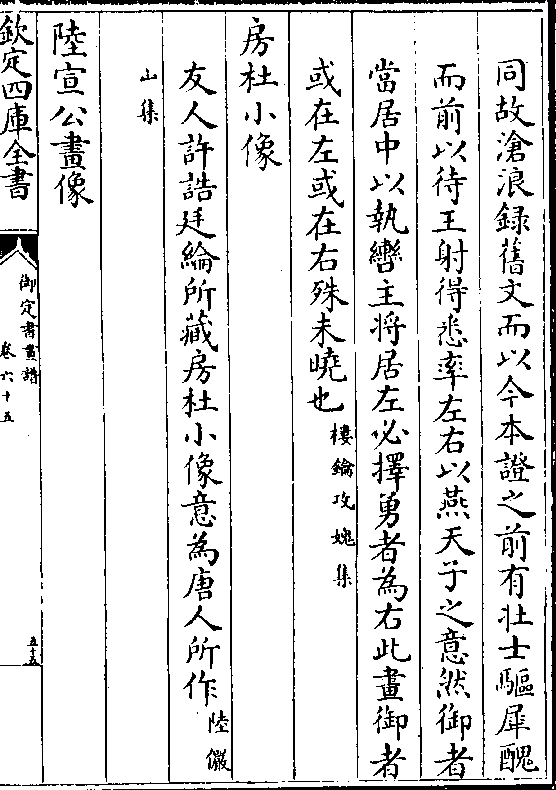 同故滄浪録舊文而以今本證之前有壮士驅犀醜
而前以待王射得悉率左右以燕天子之意然御者
當居中以執轡主将居左必擇勇者為右此畫御者
或在左或在右殊未嘵也樓鑰攻媿集
房杜小像
友人許誥廷綸所藏房杜小像意為唐人所作陸儼
山集
陸宣公畫像
欽定四庫全書
御定書畫譜
卷六十五
五十五